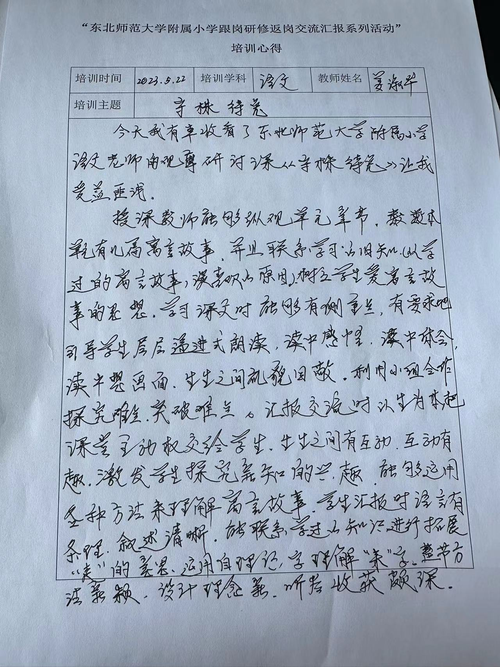 “东北师范大学附属小学跟岗研修返岗交流汇报系列活动”
培训心得
培训时间 2023.5.22 培训学科 语文 教师姓名 姜淑华
培训主题 守株待兔
今天我有幸收看了东北师范大学附属小学
语文老师的观摩研讨课《守株待兔》让我
受益匪浅。
授课教师能够纵观单元章节,
单元有几篇寓言故事,并且联系学习的旧知(以学
过的寓言故事,激发的原因)树立学生爱寓言故
事的思想。学习课文时能够有侧重点,有要求地
引导学生层层递进式朗读,读中感悟,读中体会,
读中想画面,生生之间。利用小组合作
探究难点,突破难点。汇报交流时以生为本把
课堂主动权交给学生,生生之间有互动,互动有
趣,激发学生探究新知的兴趣,能够运用
各种方法来理解寓言故事,学生汇报时语言有
条理,叙述清晰,能联系学过的知识进行拓展
“走”的意思,运用自理记,字理解“耒”字,教学方
法新颖,设计理念新,听后收获颇深。